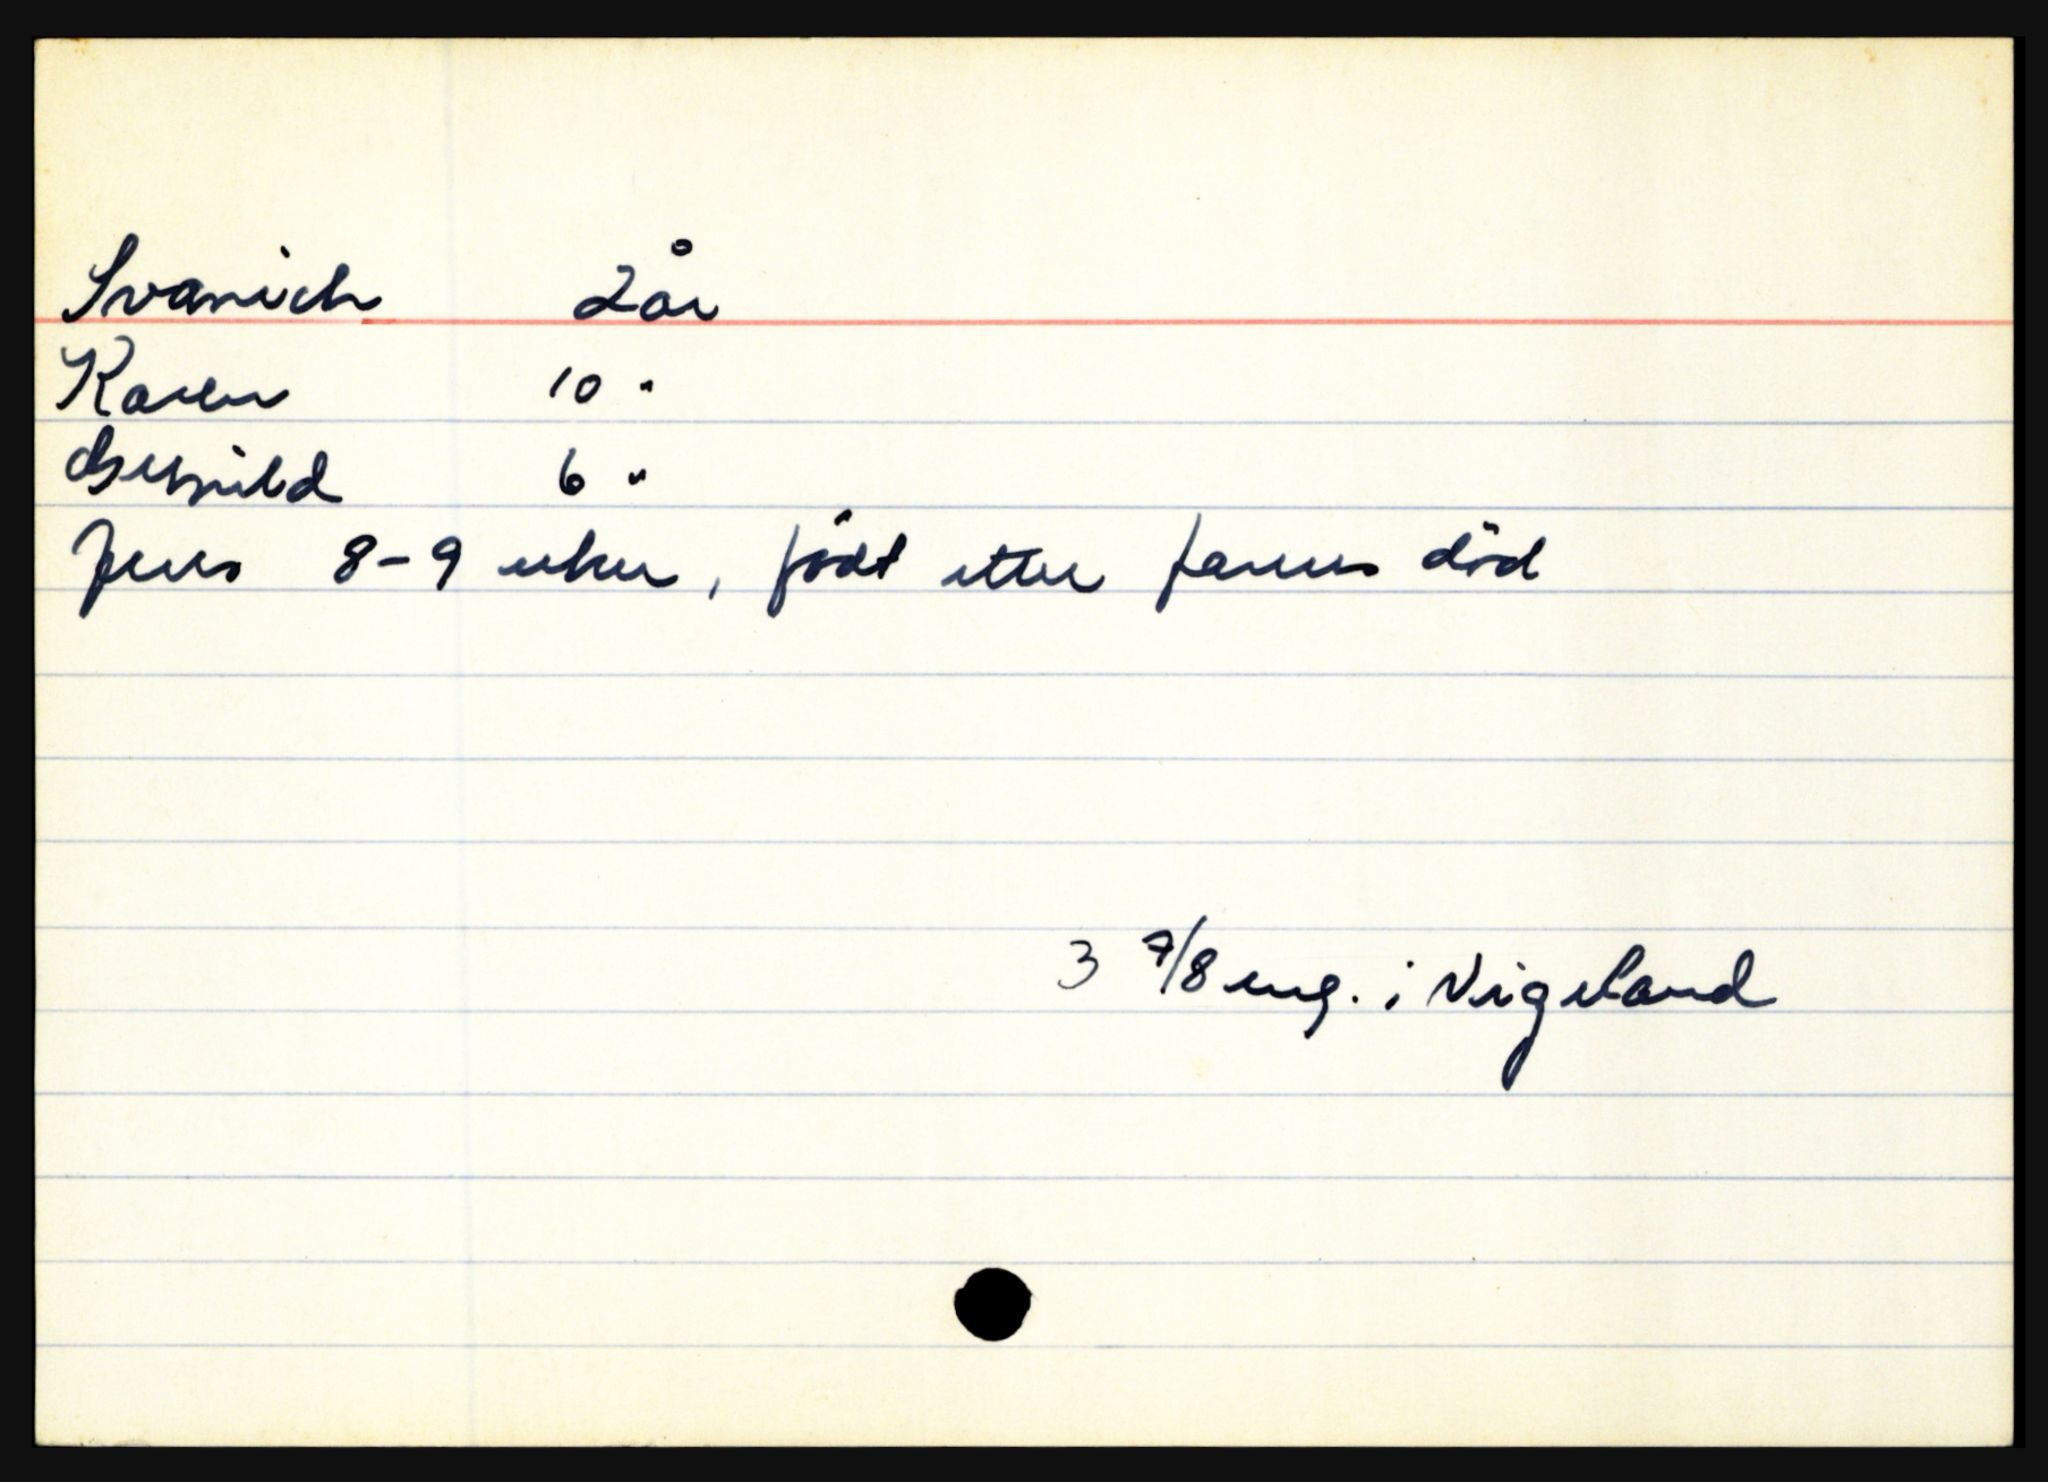 Svanich 2 år
Karen 10 "
6 "
Jens 8-9 uker, födt etter farens död
3 7/8 eng. i Vigeland